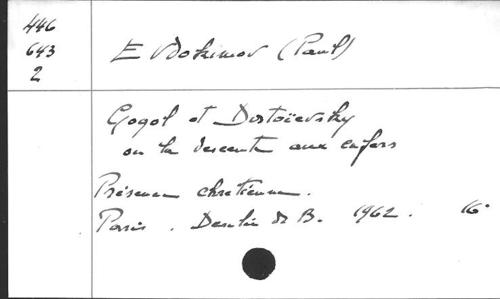 446
643
2
Evdokimov (Paul)
Gogol et Dostoïevsky
ou la descente aux enfers
Présence chrétienne.
Paris. Desclée de B. 1962. 16°